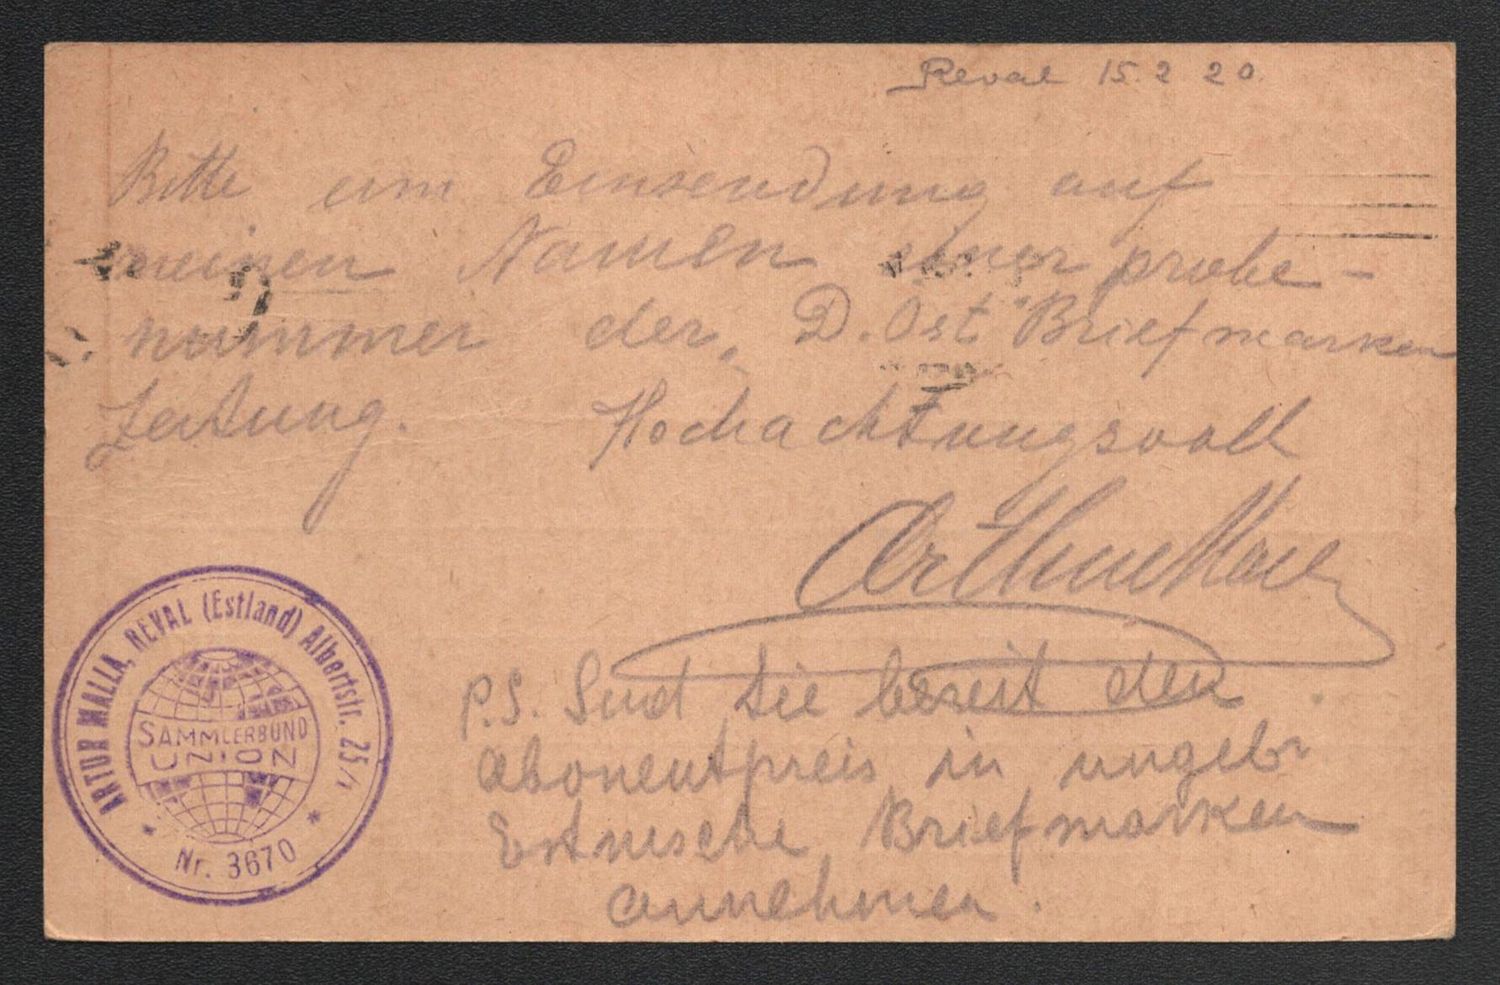 Reval 15. 2 20.
Bitte um Einsendung auf
meinen Namen einer probe-
nummer der „D. Ost" Briefmarken
Zeitung. Hochachtungsvoll
P.S. Sind Sie bereit den
Abonentpreis in ungebr
Estnische Briefmarken
annehmen.
ARTUR MALLA, REVAL (Estland) Albertstr. 25/1
SAMMLERBUND
UNION
* Nr. 3670 *